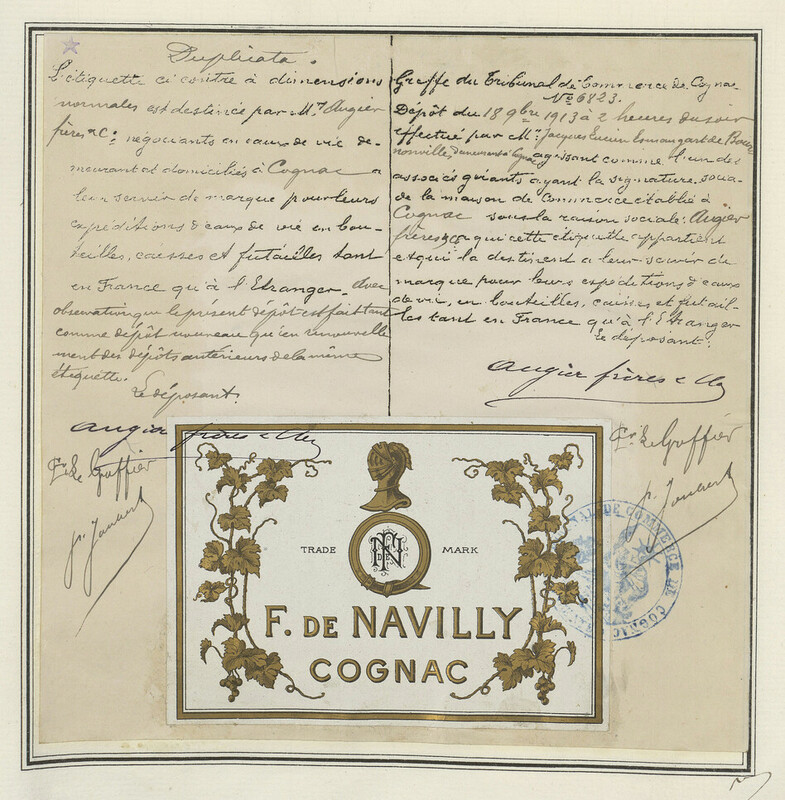 Duplicata.
L'étiquette ci contre à dimensions
normales est destinée par M.rs Augier
frères & Cie négociants en eaux de vie de-
meurant et domiciliés à Cognac a
leur servir de marque pour leurs
expéditions d'eaux de vie en bou-
teilles, caisses et futailles tant
en France qu'à l'Etranger. Avec
observation que le présent dépôt est fait tant
comme dépôt nouveau qu'en renouvelle
ment des dépôts antérieurs de la même
étiquette.
Le déposant.
Augier frères & Cie
Cr. Le Greffier
Greffe du Tribunal de Commerce de Cognac
No 6823.
Dépôt du 18 9bre 1913 à 2 heures du soir
effectué par Mr. Jacques Lucien Esmangart de Bour
nonville, demeurant à Cognac agissant comme l'un des
associés gérants ayant la signature socia-
le de la maison de Commerce établie à
Cognac sous la raison sociale: Augier
frères & Cie a qui cette étiquette appartient
et qui la destinent a leur servir de
marque pour leurs expéditions d'eaux
de vie, en bouteilles, caisses et futail-
les tant en France qu'à l'Etranger
Le déposant:
Augier frères & Cie
Cr. Le Greffier
TRADE MARK
F. DE NAVILLY
COGNAC
TRIBUNAL DE COMMERCE DE COGNAC